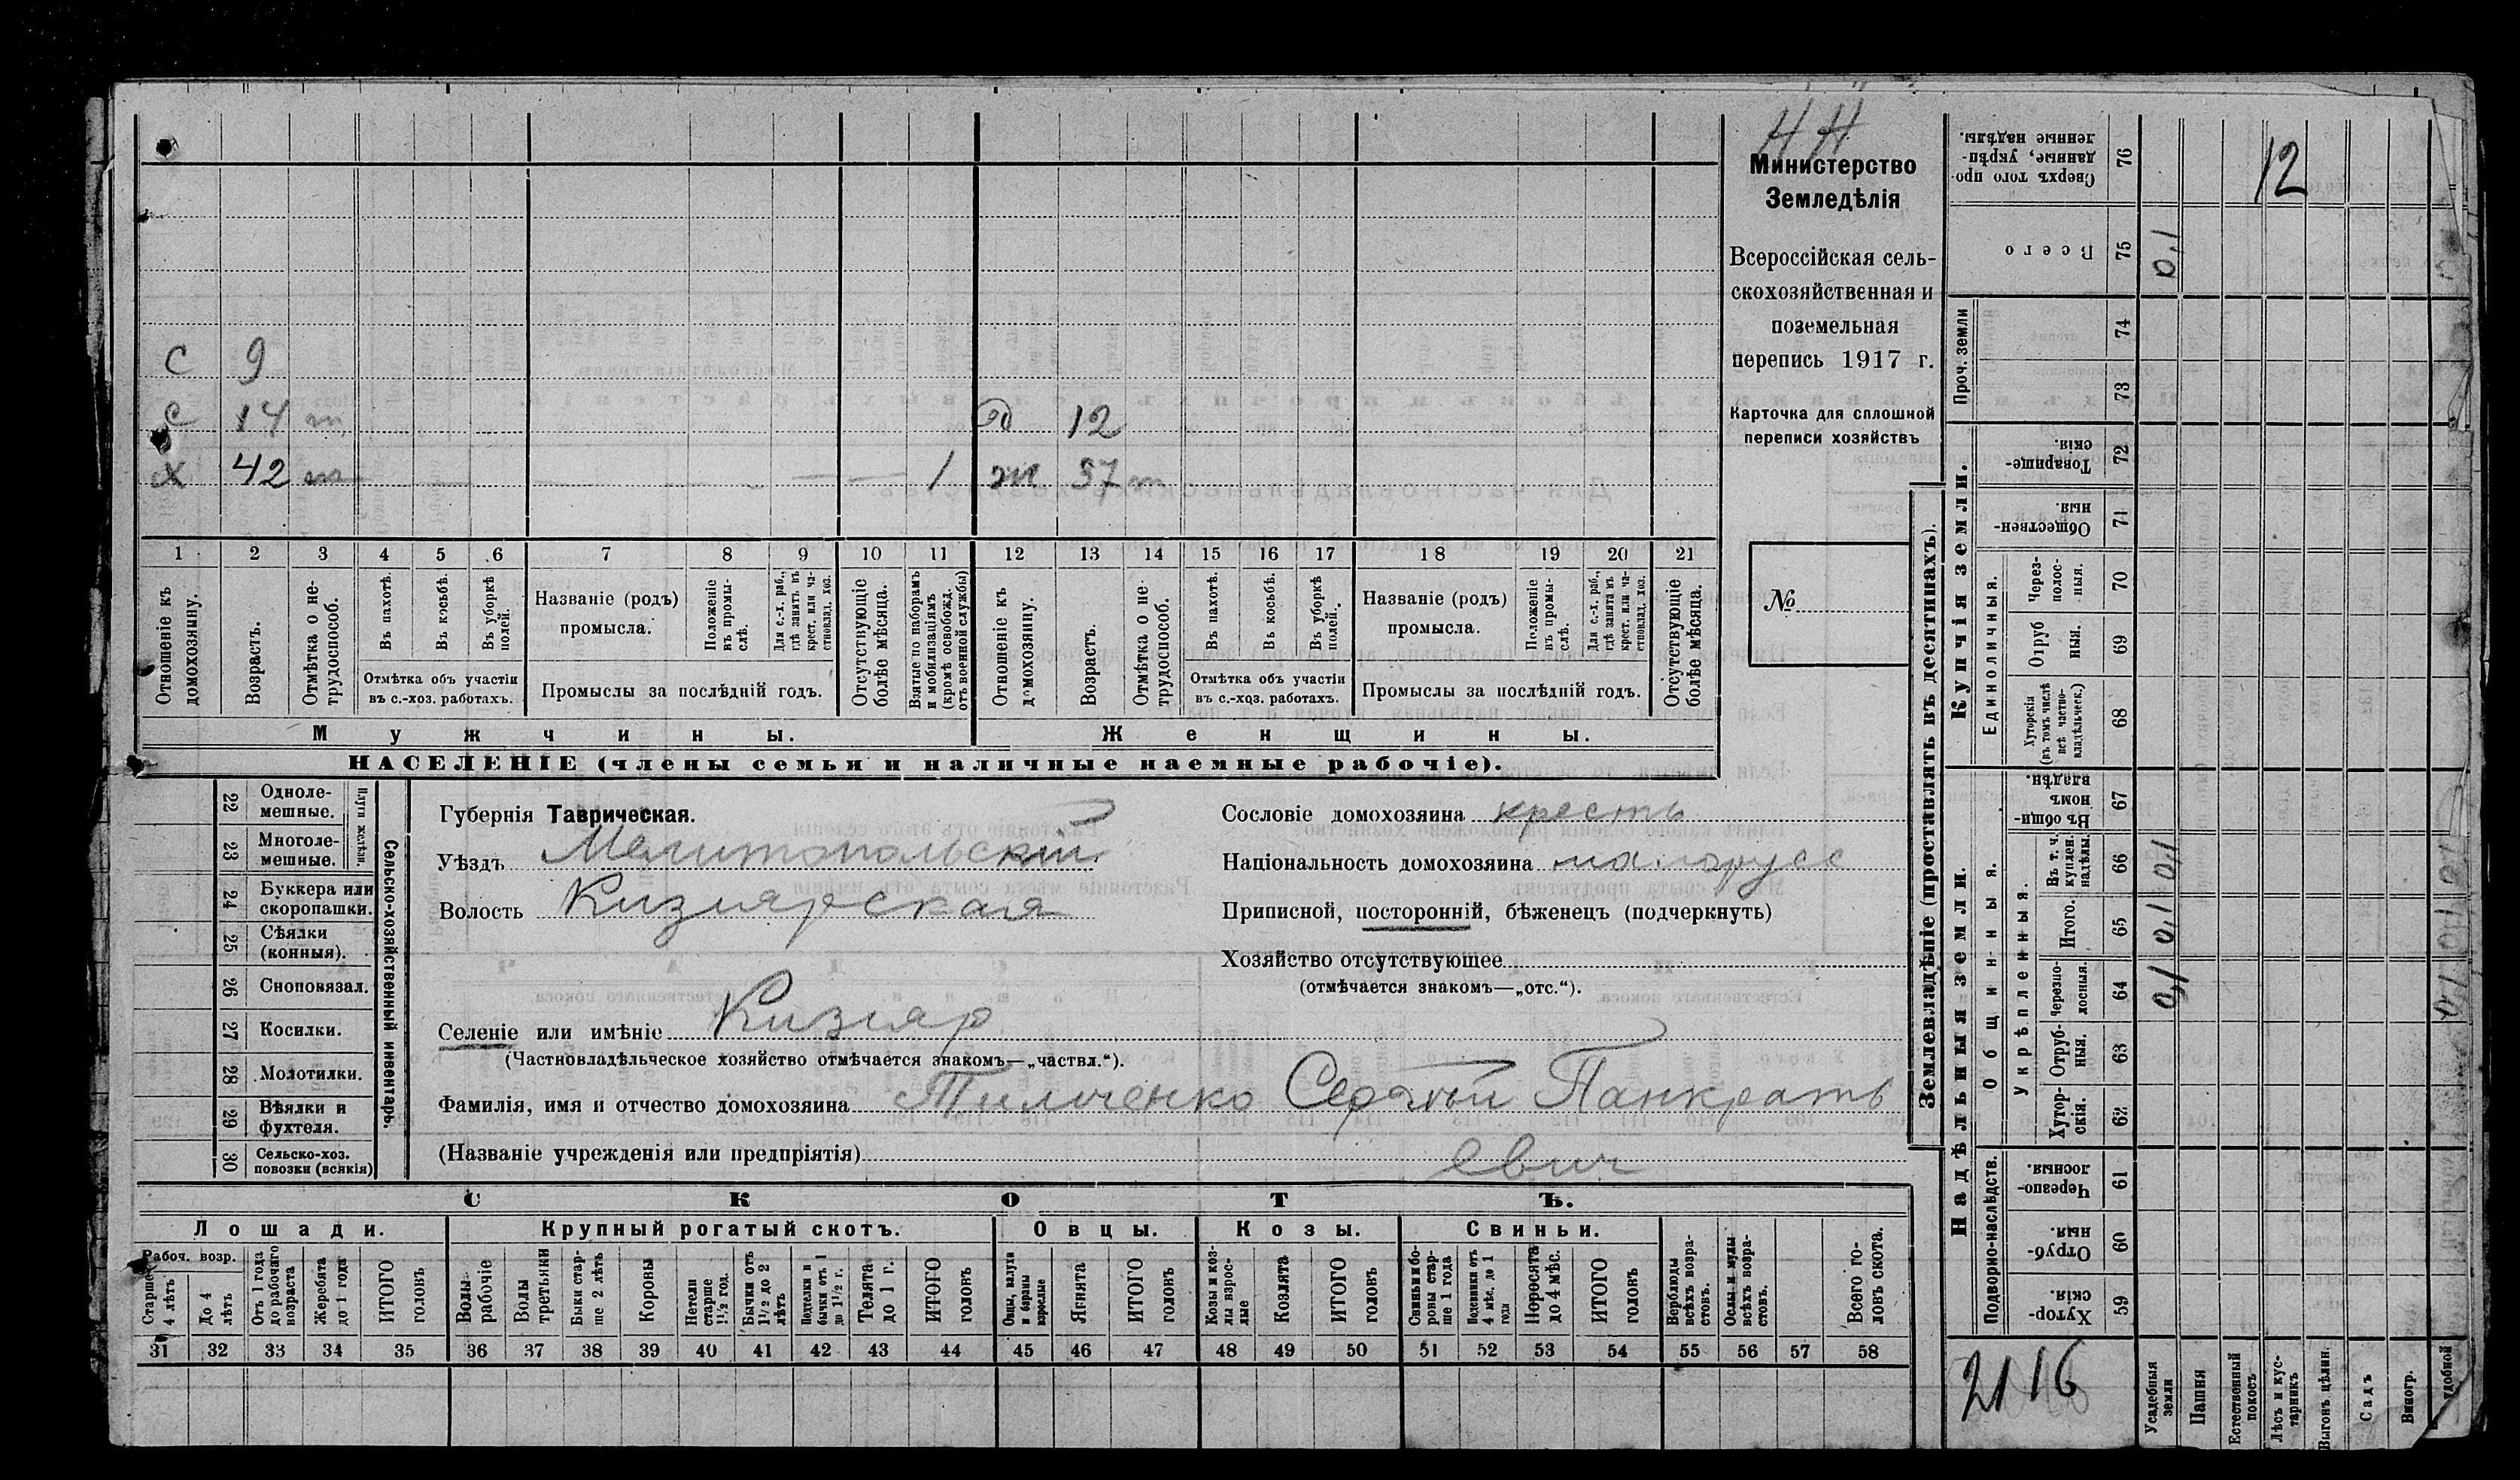 НН
Министерство
Земледѣлія
Всероссійская сель-
скохозяйственная и
поземельная
перепись 1917 г.
Карточка для сплошной
переписи хозяйствъ
№
с 9
с 14 т д 12
х 42 т 1 ж 37 т
1 2 3 4 5 6 7 8 9 10 11 12 13 14 15 16 17 18 19 20 21
Отношеніе къ домохозяину.
Возрастъ.
Отмѣтка о не-трудоспособ.
Въ пахотѣ.
Въ косьбѣ.
Въ уборкѣ полей.
Отмѣтка объ участіи
въ с.-хоз. работахъ.
Названіе (родъ)
промысла.
Положеніе въ промы-слѣ.
Для с.-х. раб., гдѣ занятъ въ крест. или ча-стновлад. хоз.
Промыслы за послѣдній годъ.
Отсутствующіе болѣе мѣсяца.
Взятые по наборамъ и мобилизаціямъ (кромѣ освобожд. отъ военной службы)
Отношеніе къ домохозяину.
Возрастъ.
Отмѣтка о не-трудоспособ.
Въ пахотѣ.
Въ косьбѣ.
Въ уборкѣ полей.
Отмѣтка объ участіи
въ с.-хоз. работахъ.
Названіе (родъ)
промысла.
Положеніе въ промы-слѣ.
Для с.-х. раб., гдѣ занята въ крест. или ча-стновлад. хоз.
Промыслы за послѣдній годъ.
Отсутствующіе болѣе мѣсяца.
Мужчины.
Женщины.
НАСЕЛЕНІЕ (члены семьи и наличные наемные рабочіе).
22 Одноле-мешные.
23 Многоле-мешные.
Плуги желѣзн.
24 Буккера или скоропашки.
25 Сѣялки (конныя).
26 Сноповязал.
27 Косилки.
28 Молотилки.
29 Вѣялки и фухтеля.
30 Сельско-хоз. повозки (всякія)
Сельско-хозяйственный инвентарь.
Губернія Таврическая.
Уѣздъ Мелитопольскій
Волость Кизіярская
Селеніе или имѣніе Кизіяр
(Частновладѣльческое хозяйство отмѣчается знакомъ—„частвл.“).
Фамилія, имя и отчество домохозяина Тильченко Сергѣй Панкрать
(Названіе учрежденія или предпріятія) евич
Сословіе домохозяина кресть
Національность домохозяина малорусс
Приписной, посторонній, бѣженецъ (подчеркнуть)
Хозяйство отсутствующее
(отмѣчается знакомъ—„отс.“).
СКОТЪ.
Лошади. Крупный рогатый скотъ. Овцы. Козы. Свиньи.
Рабоч. возр.
Старше 4 лѣтъ
До 4 лѣтъ
Отъ 1 года до рабочаго возраста
Жеребята до 1 года
ИТОГО головъ
Волы рабочіе
Волы третьяки
Быки стар-ше 2 лѣтъ
Коровы
Нетели старше 1½ год.
Бычки отъ 1½ до 2 лѣтъ
Подтелки и бычки отъ 1 до 1½ г.
Телята до 1 г.
ИТОГО головъ
Овцы, валухи и бараны взрослые
Ягнята
ИТОГО головъ
Козы и коз-лы взрос-лые
Козлята
ИТОГО головъ
Свиньи и бо-ровы стар-ше 1 года
Подсвинки отъ 4 мѣс. до 1 года
Поросята до 4 мѣс.
ИТОГО головъ
Верблюды всѣхъ возра-стовъ.
Ослы и мулы всѣхъ возра-стовъ.
Всего го-ловъ скота.
31 32 33 34 35 36 37 38 39 40 41 42 43 44 45 46 47 48 49 50 51 52 53 54 55 56 57 58
Землевладѣніе (проставлять въ десятинахъ).
Надѣльныя земли.
Купчія земли.
Проч. земли
Подворно-наслѣдств.
Общинныя.
Укрѣпленныя.
Единоличныя.
59 Хутор-скія.
60 Отруб-ныя.
61 Черезпо-лосныя.
62 Хутор-скія.
63 Отруб-ныя.
64 Черезпо-лосныя. 0,1
65 Итого. 0,1
66 Въ т. ч. куплен. надѣлы. 0,1
67 Въ общин-номъ владѣн.
68 Хуторскія (въ томъ числѣ всѣ частно-владѣльческ.)
69 Отрубныя.
70 Через-полос-ныя.
71 Обществен-ныя.
72 Товарище-скія.
73
74
75 Всего 0,1
76 Сверхъ того про-данные, укрѣп-ленные надѣлы.
12
2116
Усадебныя земли
Пашня
Естественный покосъ
Лѣсъ и кус-тарникъ
Выгонъ цѣлин.
Садъ
Виногр.
удобной